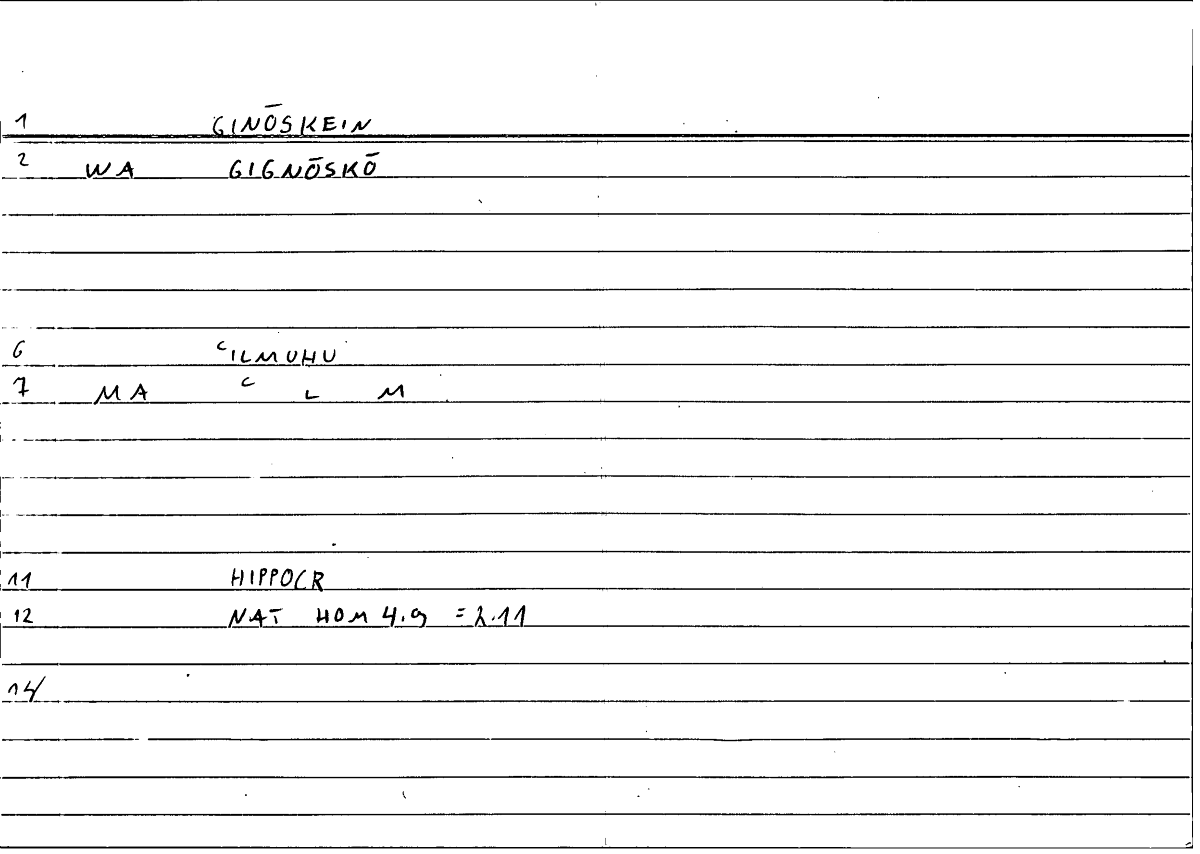 1 GINŌSKEIN
2 WA GIGNŌSKŌ
6 ʿILMUHU
7 MA ʿ L M
11 HIPPOCR
12 NAT HOM 4.9 = 2.11
14